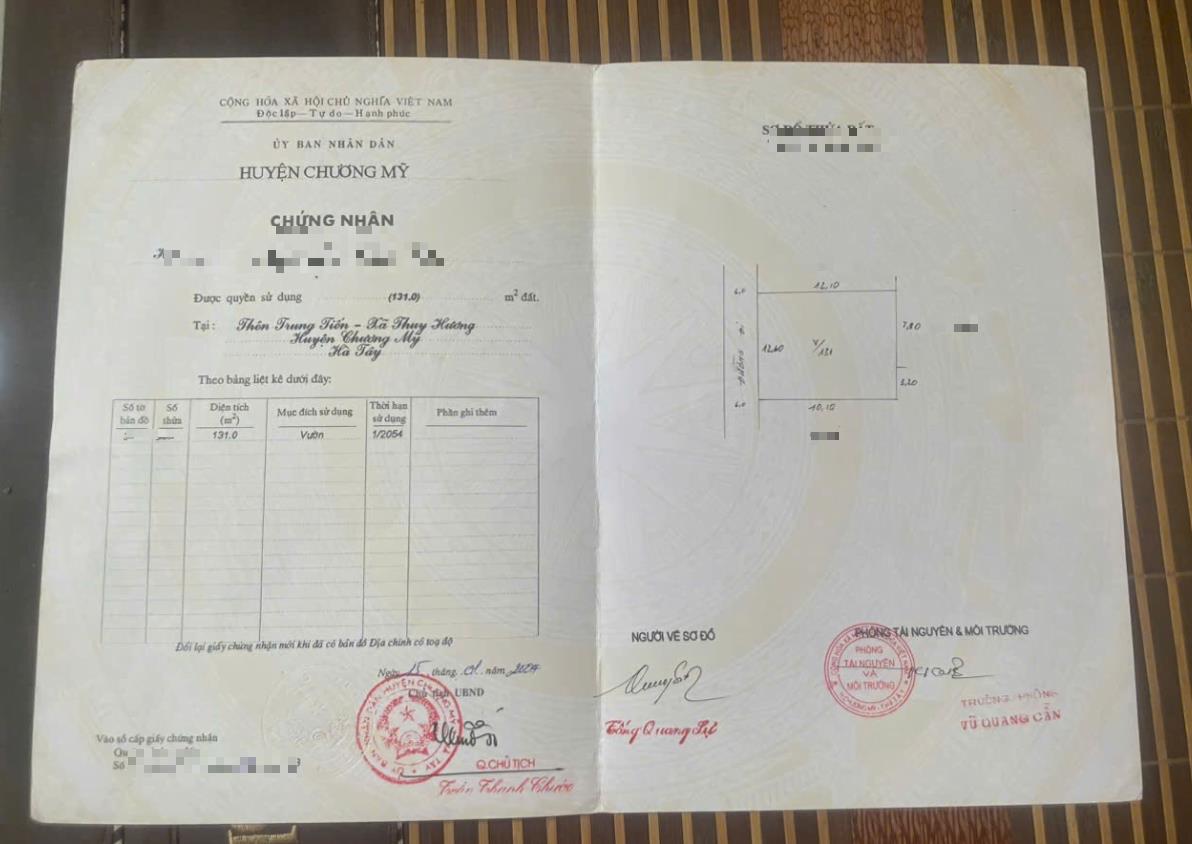 CỘNG HÒA XÃ HỘI CHỦ NGHĨA VIỆT NAM
Độc lập — Tự do — Hạnh phúc
ỦY BAN NHÂN DÂN
HUYỆN CHƯƠNG MỸ
CHỨNG NHẬN
Được quyền sử dụng (131.0) m² đất.
Tại: Thôn Trung Tiến - Xã Thụy Hương
Huyện Chương Mỹ
Hà Tây
Theo bảng liệt kê dưới đây:
Số tờ bản đồ Số thửa Diện tích (m²) Mục đích sử dụng Thời hạn sử dụng Phần ghi thêm
131.0 Vườn 1/2054
Đổi lại giấy chứng nhận mới khi đã có bản đồ Địa chính có toạ độ
Ngày 15 tháng 01 năm 2004
Chủ tịch UBND
ỦY BAN NHÂN DÂN HUYỆN CHƯƠNG MỸ
Q.CHỦ TỊCH
Trần Thanh Chước
Vào sổ cấp giấy chứng nhận
Số
SƠ ĐỒ THỬA ĐẤT
6,0
12,10
7,80
đường đi
12,60
V/131
5,20
6,0
10,10
NGƯỜI VẼ SƠ ĐỒ
Tống Quang
PHÒNG TÀI NGUYÊN & MÔI TRƯỜNG
PHÒNG
TÀI NGUYÊN
VÀ
MÔI TRƯỜNG
TRƯỞNG PHÒNG
VŨ QUANG CẦN